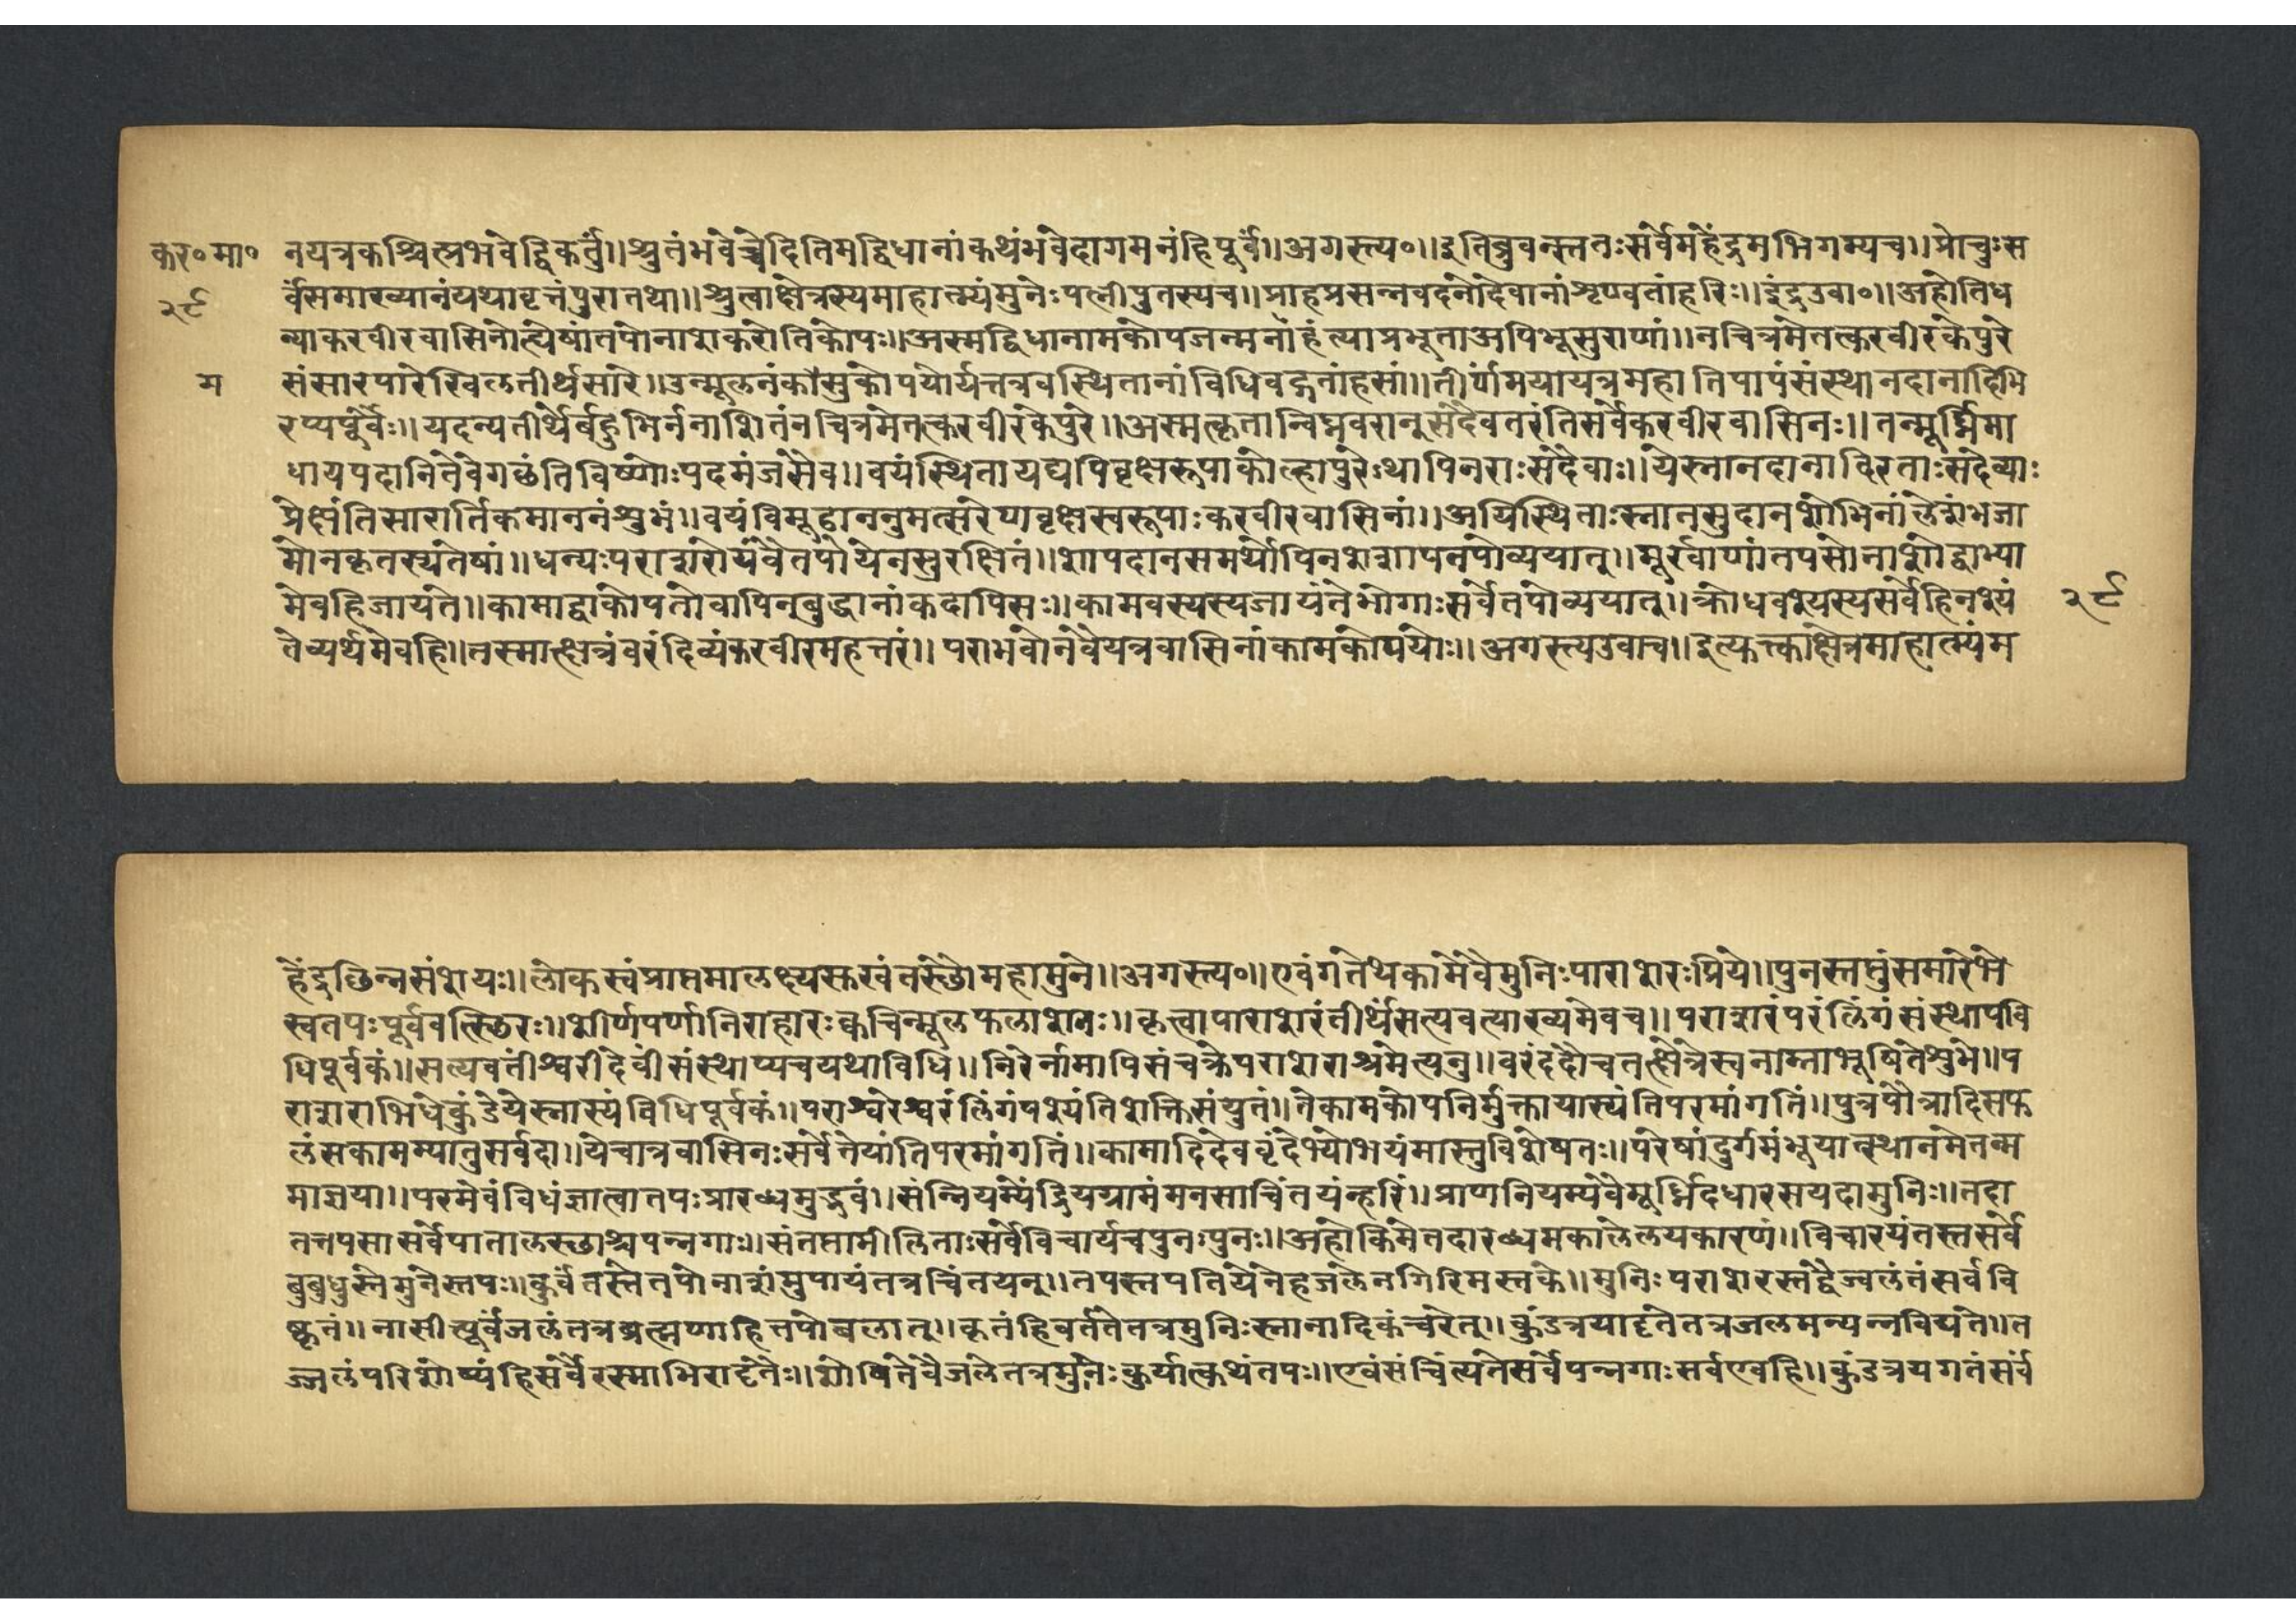 कर॰मा॰ नयत्रकश्चित्प्रभवेद्विकर्तुं।।श्रुतंभवेच्चेदितिमद्विधानांकथंभवेदागमनंहिपूर्वं।।अगस्त्य॰।।इतिब्रुवन्स्ततःसर्वेमहेंद्रमभिगम्यच।।प्रोचुःस
२९ र्वंसमाख्यानंयथावृत्तंपुरातथा।।श्रुत्वाक्षेत्रस्यमाहात्म्यंमुनेःपत्नीपुतस्यच।।प्राहप्रसन्नवदनोदेवानांशृण्वतांहरिः।।इंद्रउवा॰।।अहोतिध
न्याकरवीरवासिनोत्येषांतपोनाशकरोतिकोपः।।अस्मद्विधानामकोपजन्मनांहंत्याप्रभूताअपिभूसुराणां।।नचित्रमेतत्करवीरकेपुरे
म संसारपारेखिलतीर्थसारे।।उन्मूलनंकौसुकोपयोर्यत्तत्रवस्थितानांविधिवद्गतांहसां।।तीर्णामयायत्रमहातिपापंसंस्थानदानादिभि
रप्यपूर्वैः।।यदन्यतीर्थैर्बहुभिर्ननाशितंनचित्रमेतत्करवीरकेपुरे।।अस्मत्कृतान्विघ्नवरानुसदैवतरंतिसर्वेकरवीरवासिनः।।तन्मूर्ध्निमा
धायपदानितेवैगछंतिविष्णोःपदमंजसैव।।वयंस्थितायद्यपिवृक्षरूपाकोल्हापुरेऽथापिनराःसदैवाः।।येस्नानदानाविरताःसदैव्याः
प्रेक्षंतिसारार्तिकमाननंशुभं।।वयंविमूढाननुमत्सरेणवृक्षस्वरूपाःकरवीरवासिनां।।अयिस्थिताःस्नानसुदानशोभिनांलेशंभजा
मोनकृतस्यतेषां।।धन्यःपराशरोयंवैतपोयेनसुरक्षितं।।शापदानसमर्थोपिनशशापनपोव्ययात्।।मूर्खाणांतपसोनाशोद्वाभ्या
मेवहिजायते।।कामाद्वाकोपतोवापिनबुद्धानांकदापिसः।।कामवस्यस्यजायंतेभोगाःसर्वेतपोव्ययात्।।क्रोधवश्यस्यसर्वंहिनश्यं २९
तेव्यर्थमेवहि।।तस्मात्क्षेत्रंवरंदिव्यंकरवीरमहत्तरं।।पराभवोनवैयत्रवासिनांकामकोपयोः।।अगस्त्यउवाच।।इत्युक्त्काक्षेत्रमाहात्म्यंम
हेंद्रछिन्नसंशयः।।लोकस्वंप्राप्तमालक्ष्यस्करवंतस्छौमहामुने।।अगस्त्य॰।।एवंगतेथकामेवैमुनिःपाराशरःप्रिये।।पुनस्तप्तुंसमारेभे
स्वतपःपूर्ववत्स्छिरः।।शीर्णपर्णानिराहारःक्वचिन्मूलफलाशनः।।कृत्वापाराशरंतीर्थंसत्यवत्याख्यमेवच।।पराशरंपरंलिंगंसंस्थापवि
धिपूर्वकं।।सत्यवतीश्वरींदेवींसंस्थाप्यचयथाविधि।।गिरेर्नामापिसंचक्रेपराशराश्रमेत्यनु।।वरंददौचतत्क्षेत्रेस्वनाम्नाभूषितेशुभे।।प
राशराभिधेकुंडेयेस्नास्यंविधिपूर्वकं।।पराश्वरेश्वरंलिंगंपश्यंतिशक्तिसंयुतं।।तेकामकोपनिर्मुक्तायास्यंतिपरमांगतिं।।पुत्रपौत्रादिसफ
लंसकामम्यातुसर्वदा।।येचात्रवासिनःसर्वेतेयांतिपरमांगतिं।।कामादिदेववृंदेभ्योभयंमास्तुविशेषतः।।परेषांदुर्गमंभूयात्स्थानमेतन्म
माज्ञया।।परमेवंविधंज्ञात्वातपःप्रारब्धमुद्भवं।।संन्नियम्येंद्रियग्रामंमनसाचिंतयंन्हरिं।।प्राणनियम्यवैमूर्ध्निदधारसयदामुनिः।।तदा
तत्तपसासर्वेपातालस्छाश्चपन्नगाः।।संतप्तामीलिताःसर्वेविचार्यचपुनःपुनः।।अहोकिमेतदारब्धमकालेलयकारणं।।विचारयंतस्तसर्वे
बुबुधुस्तेमुनेस्तपः।।कुर्वंतस्तेतपोनाशंमुपायंतत्रचिंतयन्।।तपस्तपतियेनेहजलेनगिरिमस्तके।।मुनिःपराशरस्तद्वैज्वलंतंसर्ववि
ष्कृतं।।नासीत्पूर्वंजलंतत्रब्रह्मणाहितपोबलात्।।कृतंहिवर्ततेतत्रमुनिःस्नानादिकंचरेत्।।कुंडत्रयादृतेतत्रजलमन्यन्नविद्यते।।त
ज्जलंपरिशोष्यंहिसर्वैरस्माभिरादृतैः।।शोषितेवैजलेतत्रमुनिःकुर्यात्कथंतपः।।एवंसंचिंत्यतेसर्वेपन्नगाःसर्वएवहि।।कुंडत्रयगतंसर्वं